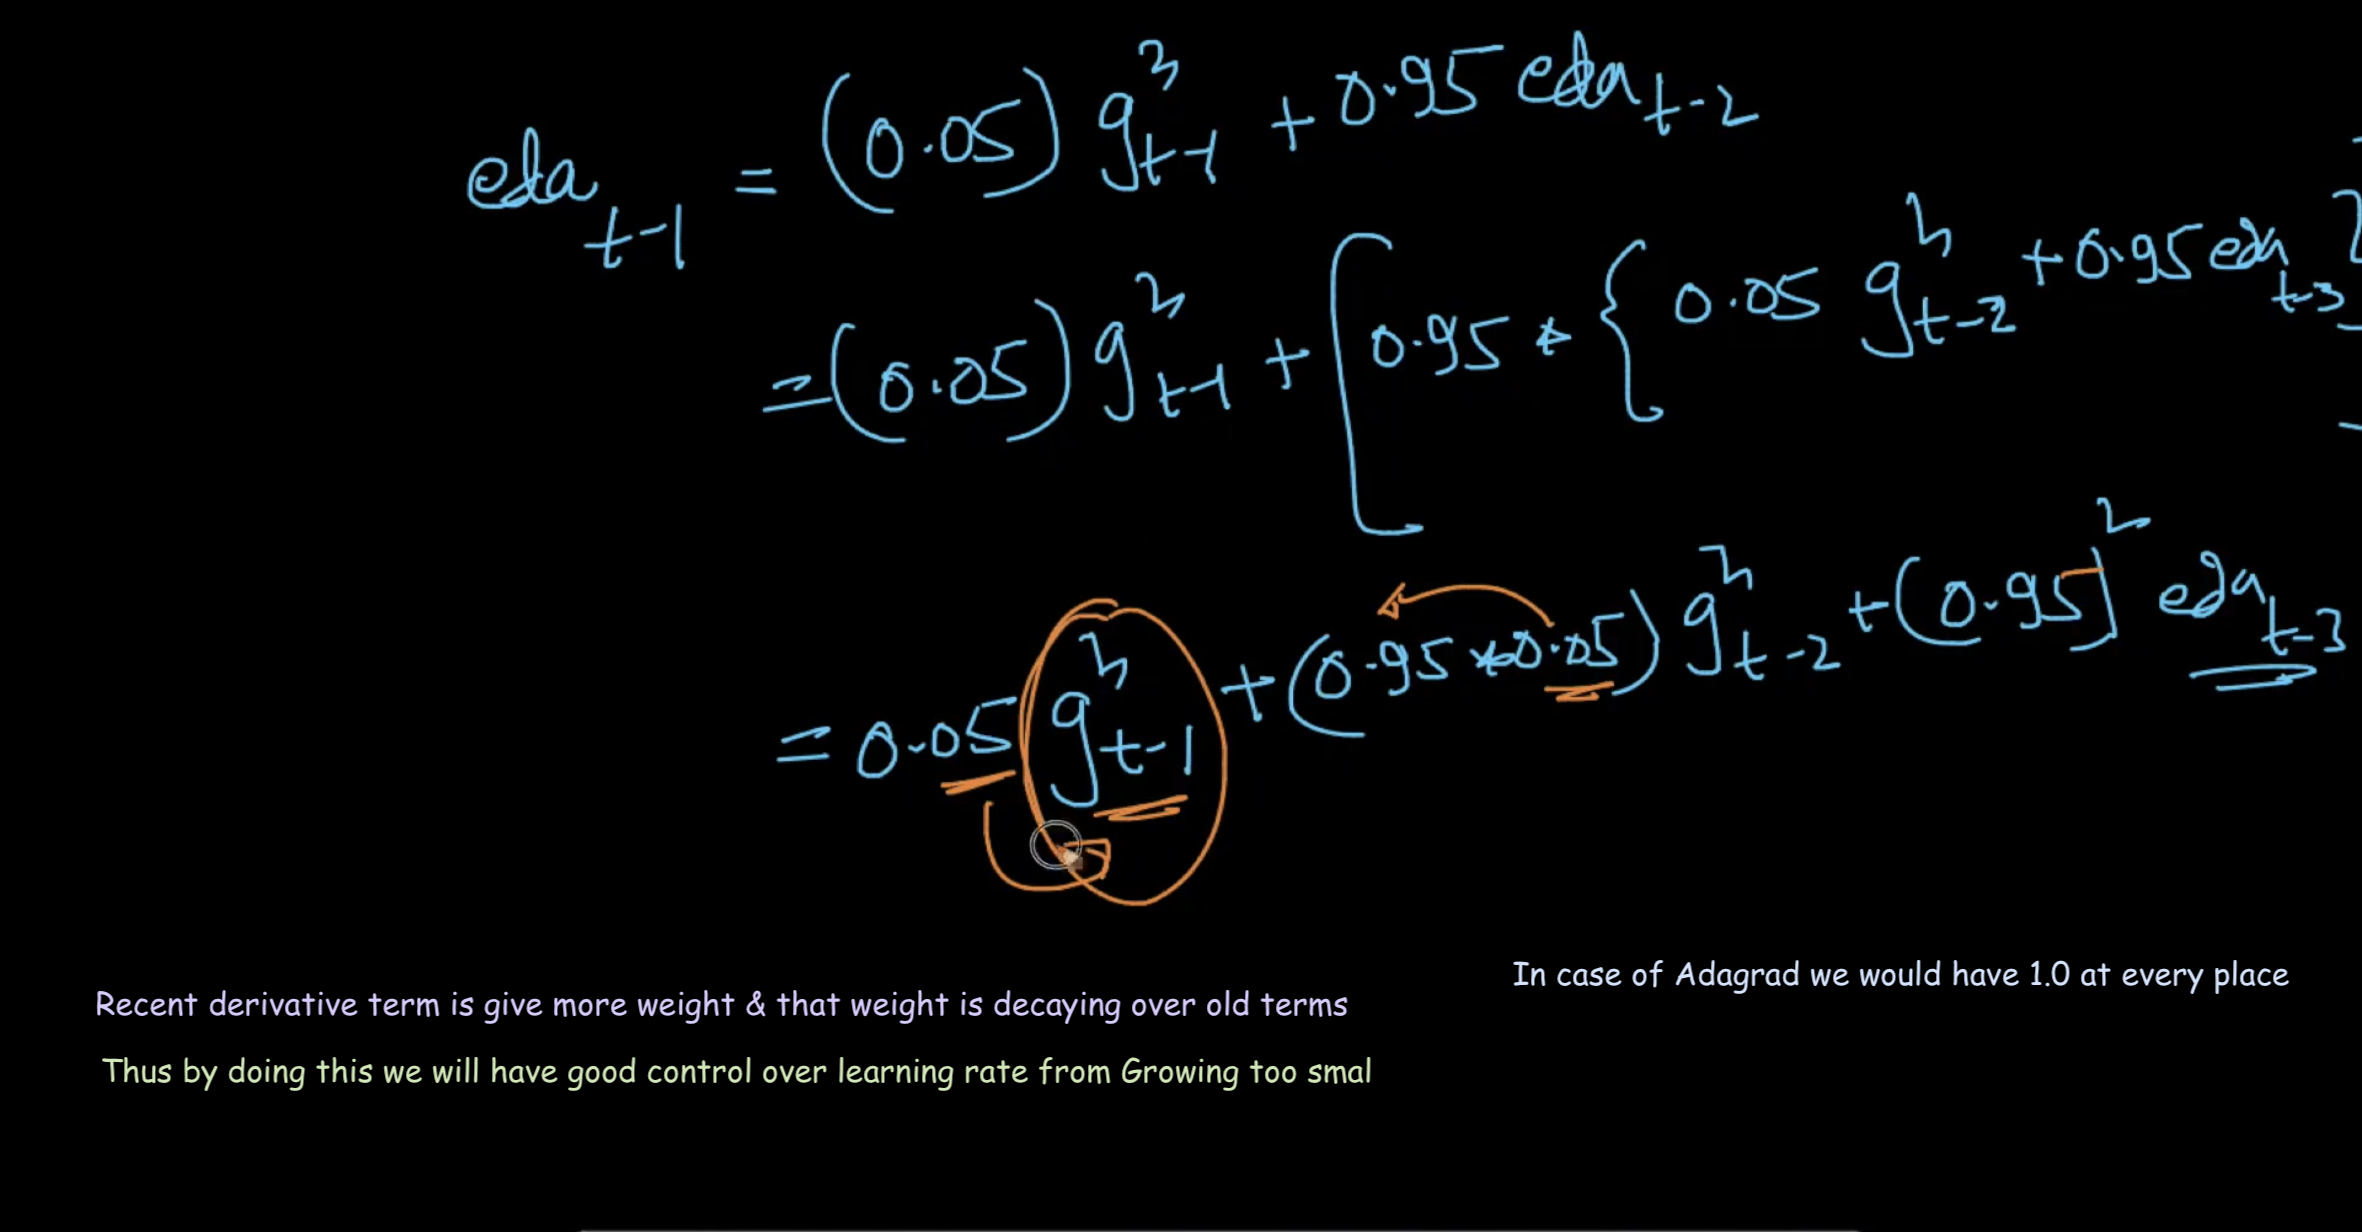 eda_{t-1} = (0.05) g²_{t-1} + 0.95 eda_{t-2}
= (0.05) g²_{t-1} + [ 0.95 * { 0.05 g²_{t-2} + 0.95 eda_{t-3} }
= 0.05 g²_{t-1} + (0.95 * 0.05) g²_{t-2} + (0.95)² eda_{t-3}
In case of Adagrad we would have 1.0 at every place
Recent derivative term is give more weight & that weight is decaying over old terms
Thus by doing this we will have good control over learning rate from Growing too smal